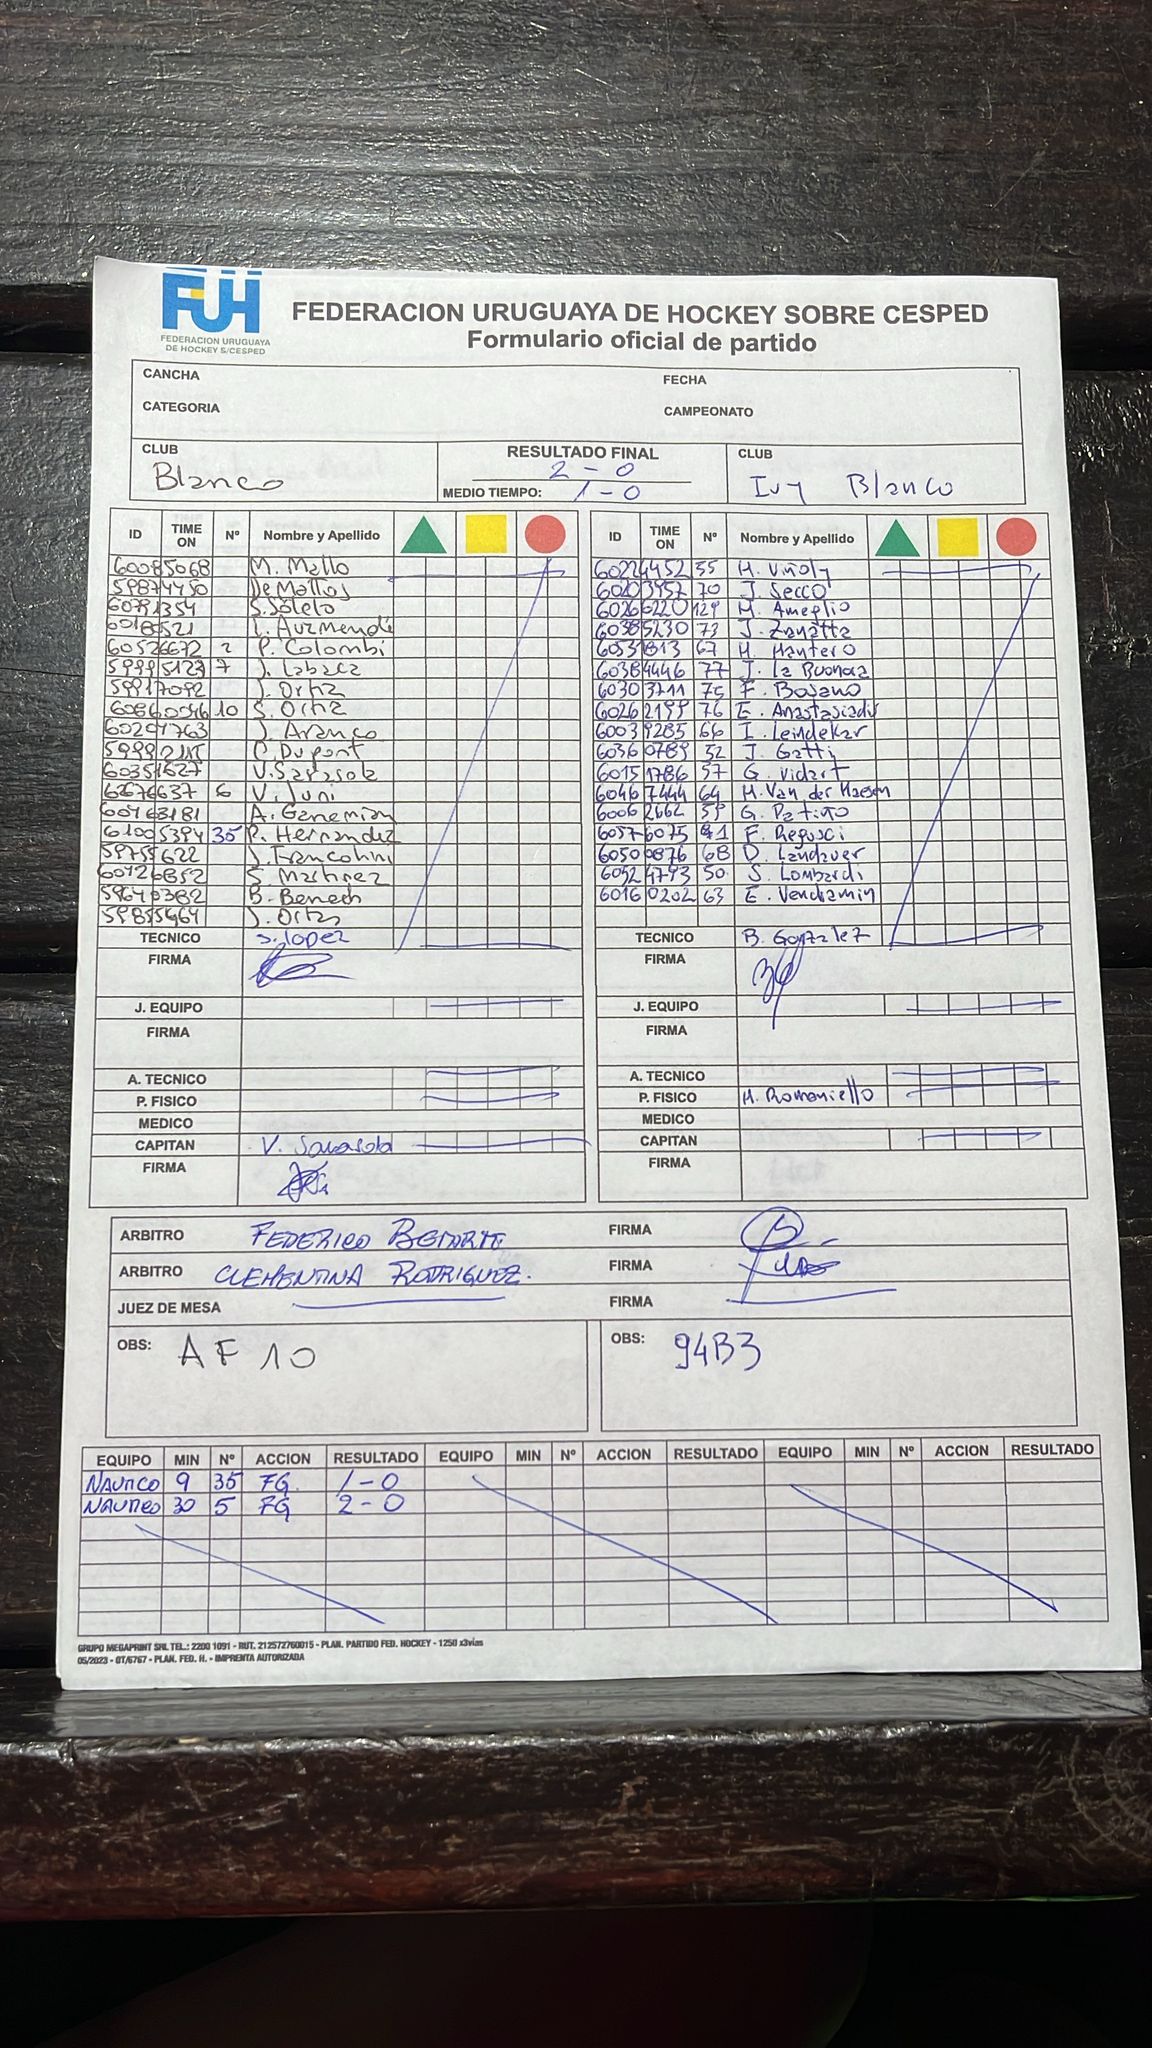 FUH
FEDERACION URUGUAYA
DE HOCKEY S/CESPED
FEDERACION URUGUAYA DE HOCKEY SOBRE CESPED
Formulario oficial de partido
CANCHA FECHA
CATEGORIA CAMPEONATO
CLUB RESULTADO FINAL CLUB
Blanco 2 - 0 Ivy Blanco
MEDIO TIEMPO: 1 - 0
ID TIME ON Nº Nombre y Apellido ID TIME ON Nº Nombre y Apellido
60085068 M. Mallo 60224452 55 M. Viñoly
59874450 De Mattos 60203957 70 J. Secco
60781354 S. Sotelo 60266220 129 M. Ameglio
60180521 60385230 73 J. Zanatta
60526672 2 P. Colombi 60531813 67 M. Mantero
59995123 7 J. Labaca 60384446 77 J. La Buonora
59917092 J. Ortiz 60303711 75 F. Bosano
60860046 10 S. Ortiz 60262199 76 E. Anastasiadis
60297763 J. Aranco 60039285 66 I. Leindekar
C. Dupont 60360789 52 J. Gatti
60351627 V. Sarasola 60151786 57 G. Vidart
62676637 6 V. Juni 60467444 64 M. Van der Maesen
60763181 A. Ganemian 60062662 59 G. Patiño
61005394 35 P. Hernandez 60576075 F. Regusci
59755622 J. Francolini 60500876 68 D. Landauer
60726852 S. Martinez 60524743 50 S. Lombardi
59640382 B. Benech 60160202 63 E. Vendramin
59855464 J. Ortiz
TECNICO S. Lopez TECNICO B. Gonzalez
FIRMA FIRMA
J. EQUIPO J. EQUIPO
FIRMA FIRMA
A. TECNICO A. TECNICO
P. FISICO P. FISICO M. Romaniello
MEDICO MEDICO
CAPITAN V. Sarasola CAPITAN
FIRMA FIRMA
ARBITRO FEDERICO BETARTE FIRMA
ARBITRO CLEMENTINA RODRIGUEZ. FIRMA
JUEZ DE MESA FIRMA
OBS: AF 10 OBS: 94B3
EQUIPO MIN Nº ACCION RESULTADO EQUIPO MIN Nº ACCION RESULTADO EQUIPO MIN Nº ACCION RESULTADO
NAUTICO 9 35 FG. 1 - 0
NAUTICO 30 5 FG 2 - 0
GRUPO MEGAPRINT SRL TEL.: 2200 1091 - RUT. 212572760015 - PLAN. PARTIDO FED. HOCKEY - 1250 x3vias
05/2023 - OT/6767 - PLAN. FED. H. - IMPRENTA AUTORIZADA